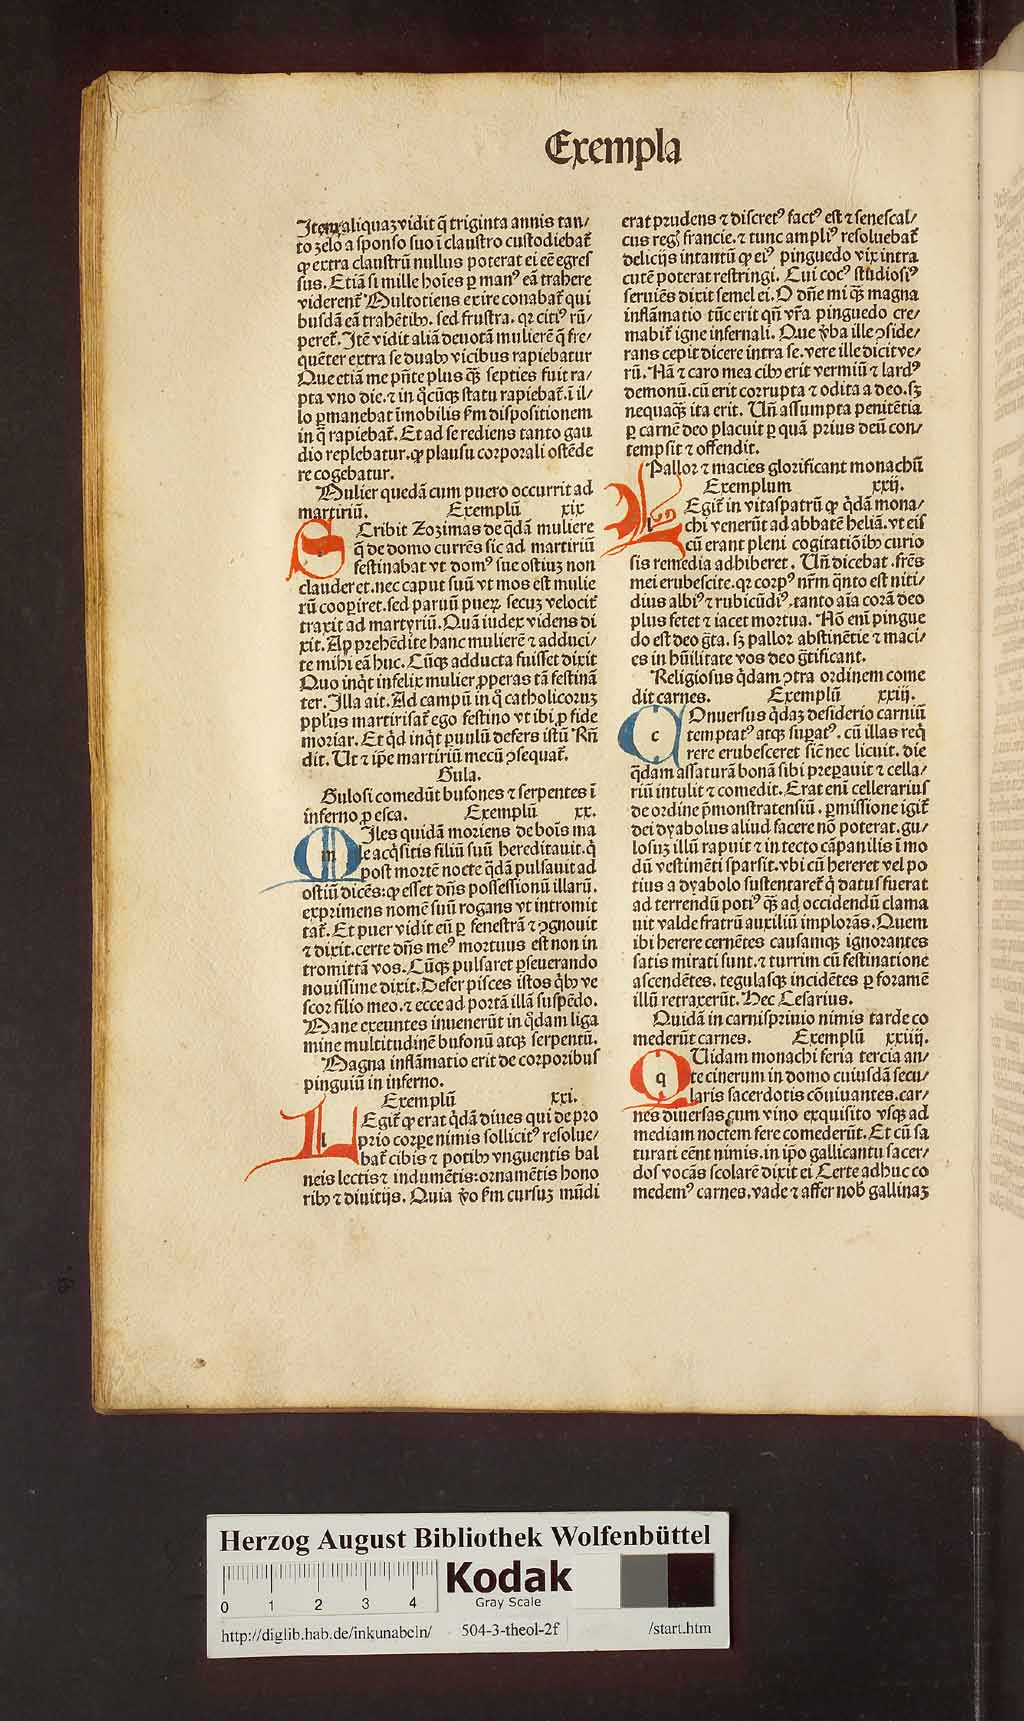 Exempla
Itemaliquaʒ vidit q̄ triginta annis tan/
to ʒelo a sponso suo ī claustro custodiebat᷑
ꝙ extra claustrū nullus poterat ei eē egres
sus. Etiā si mille hoīes ꝑ manꝰ eā trahere
viderent᷑ Multotiens exire conabat᷑ qui
busdā eā trahētibꝰ. sed frustra. qꝛ citiꝰ rū/
peret᷑. Itē vidit aliā deuotā mulierē q̄ fre/
quēter extra se duabꝰ vicibus rapiebatur
Que etiā me pn̄te plus qꝫ̄ septies fuit ra/
pta vno die. ⁊ in q̄cūqꝫ statu rapiebat᷑. ī il/
lo ꝑmanebat īmobilis ẜm dispositionem
in q̄ rapiebat᷑. Et ad se rediens tanto gau
dio replebatur. ꝙ plausu corporali ostēde
re cogebatur.
Mulier quedā cum puero occurrit ad
martiriū. Exemplū xix
SCribit Zoʒimas de q̄dā muliere
q̄ de domo currēs sic ad martiriū
festinabat vt domꝰ sue ostiuʒ non
clauderet. nec caput suū vt mos est mulie
rū cooꝑiret. sed paruū pueꝝ secuʒ velocit᷑
traxit ad martyriū. Quā iudex videns di
xit. Apprehēdite hanc mulierē ⁊ adduci/
te mihi eā huc. Cūqꝫ adducta fuisset dixit
Quo inq̇t infelix mulier ꝓperas tā festinā
ter. Illa ait. Ad campū in q̊ catholicoruʒ
pp̄lus martirisat᷑ ego festino vt ibi ꝓ fide
moriar. Et q̇d inq̇t puulū defers istū Rn̄
dit. Ut ⁊ ip̄e martiriū mecū ꝯsequat᷑.
Gula.
Gulosi comedūt bufones ⁊ serpentes ī
inferno ꝓ esca. Exemplū xx.
MIles quidā moriens de bois ma
le acq̇sitis filiū suū hereditauit. q̇
post mortē nocte q̄dā pulsauit ad
ostiū dicēs: ꝙ esset dn̄s possessionū illarū.
exprimens nomē suū rogans vt intromit
tat᷑. Et puer vidit eū ꝑ fenestrā ⁊ ꝯgnouit
⁊ dixit. certe dn̄s meꝰ mortuus est non in
tromittā vos. Cūqꝫ pulsaret ꝑseuerando
nouissime dixit. Defer pisces istos q̇bꝰ ve
scor filio meo. ⁊ ecce ad portā illā suspēdo.
Mane exeuntes inuenerūt in q̄dam liga
mine multitudinē bufonū atqꝫ serpentū.
Magna inflāmatio erit de corporibus
pinguiū in inferno.
Exemplū xxi.
LEgit᷑ ꝙ erat q̇dā diues qui de pro
prio corꝑe nimis sollicitꝰ resolue/
bat᷑ cibis ⁊ potibꝰ vnguentis bal
neis lectis ⁊ indumētis: ornamētis hono
ribꝰ ⁊ diuitijs. Quia v̊o ẜm cursuʒ mūdi
erat prudens ⁊ discretꝰ factꝰ est ⁊ senescal/
cus regꝭ francie. ⁊ tunc ampliꝰ resoluebat᷑
delicijs intantū ꝙ eiꝰ pinguedo vix intra
cutē poterat restringi. Cui cocꝰ studiosiꝰ
seruiēs dixit semel ei. O dn̄e mi qꝫ̄ magna
inflāmatio tūc erit qn̄ vr̄a pinguedo cre/
mabit᷑ igne infernali. Que v̊ba ille ꝯside/
rans cepit dicere intra se. vere ille dicit ve/
rū. Nā ⁊ caro mea cibꝰ erit vermiū ⁊ lardꝰ
demonū. cū erit corrupta ⁊ odita a deo. sꝫ
nequaqꝫ̄ ita erit. Un̄ assumpta penitētia
ꝑ carnē deo placuit ꝑ quā prius deū con/
tempsit ⁊ offendit.
Pallor ⁊ macies glorificant monachū
Exemplum xxij.
LEgit᷑ in vitaspatrū ꝙ q̇dā mona/
chi venerūt ad abbatē heliā. vt eis
cū erant pleni cogitatiōibꝰ curio
sis remedia adhiberet. Un̄ dicebat. fr̄es
mei erubescite. qꝛ corpꝰ nr̄m q̄nto est niti/
dius albiꝰ ⁊ rubicūdiꝰ, tanto aīa corā deo
plus fetet ⁊ iacet mortua. Nō enī pingue
do est deo gr̄ta. sꝫ pallor abstinētie ⁊ maci/
es in hūilitate vos deo gr̄tificant.
Religiosus q̇dam ꝯtra ordinem come
dit carnes. Exemplū xxiij.
COnuersus q̇daʒ desiderio carniū
temptatꝰ atqꝫ suꝑatꝰ. cū illas req̇
rere erubesceret sic nec licuit. die
q̄dam assaturā bonā sibi preꝑauit ⁊ cella/
riū intulit ⁊ comedit. Erat enī cellerarius
de ordine p̄monstratensiū. ꝑmissione igit᷑
dei dyabolus aliud facere nō poterat. gu/
losuʒ illū rapuit ⁊ in tecto cāpanilis ī mo
dū vestimēti sparsit. vbi cū hereret vel po
tius a dyabolo sustentaret᷑ q̇ datus fuerat
ad terrendū potiꝰ qꝫ̄ ad occidendū clama
uit valde fratrū auxiliū implorās. Quem
ibi herere cernētes causamqꝫ ignorantes
satis mirati sunt. ⁊ turrim cū festinatione
ascendētes. tegulasqꝫ incidētes ꝑ foramē
illū retraxerūt. Hec Cesarius.
Quidā in carnispriuio nimis tarde co
mederūt carnes. Exemplū xxiiij.
QUidam monachi feria tercia an/
te cinerum in domo cuiusdā secu/
laris sacerdotis cōuiuantes. car/
nes diuersas cum vino exquisito vsqꝫ ad
mediam noctem fere comederūt. Et cū sa
turati eēnt nimis. in ip̄o gallicantu sacer/
dos vocās scolarē dixit ei Certe adhuc co
medemꝰ carnes. vade ⁊ affer nob̄ gallinaʒ
Herzog August Bibliothek Wolfenbüttel
Kodak
Gray Scale
0 1 2 3 4
http://diglib.hab.de/inkunabeln/ 504-3-theol-2f /start.htm